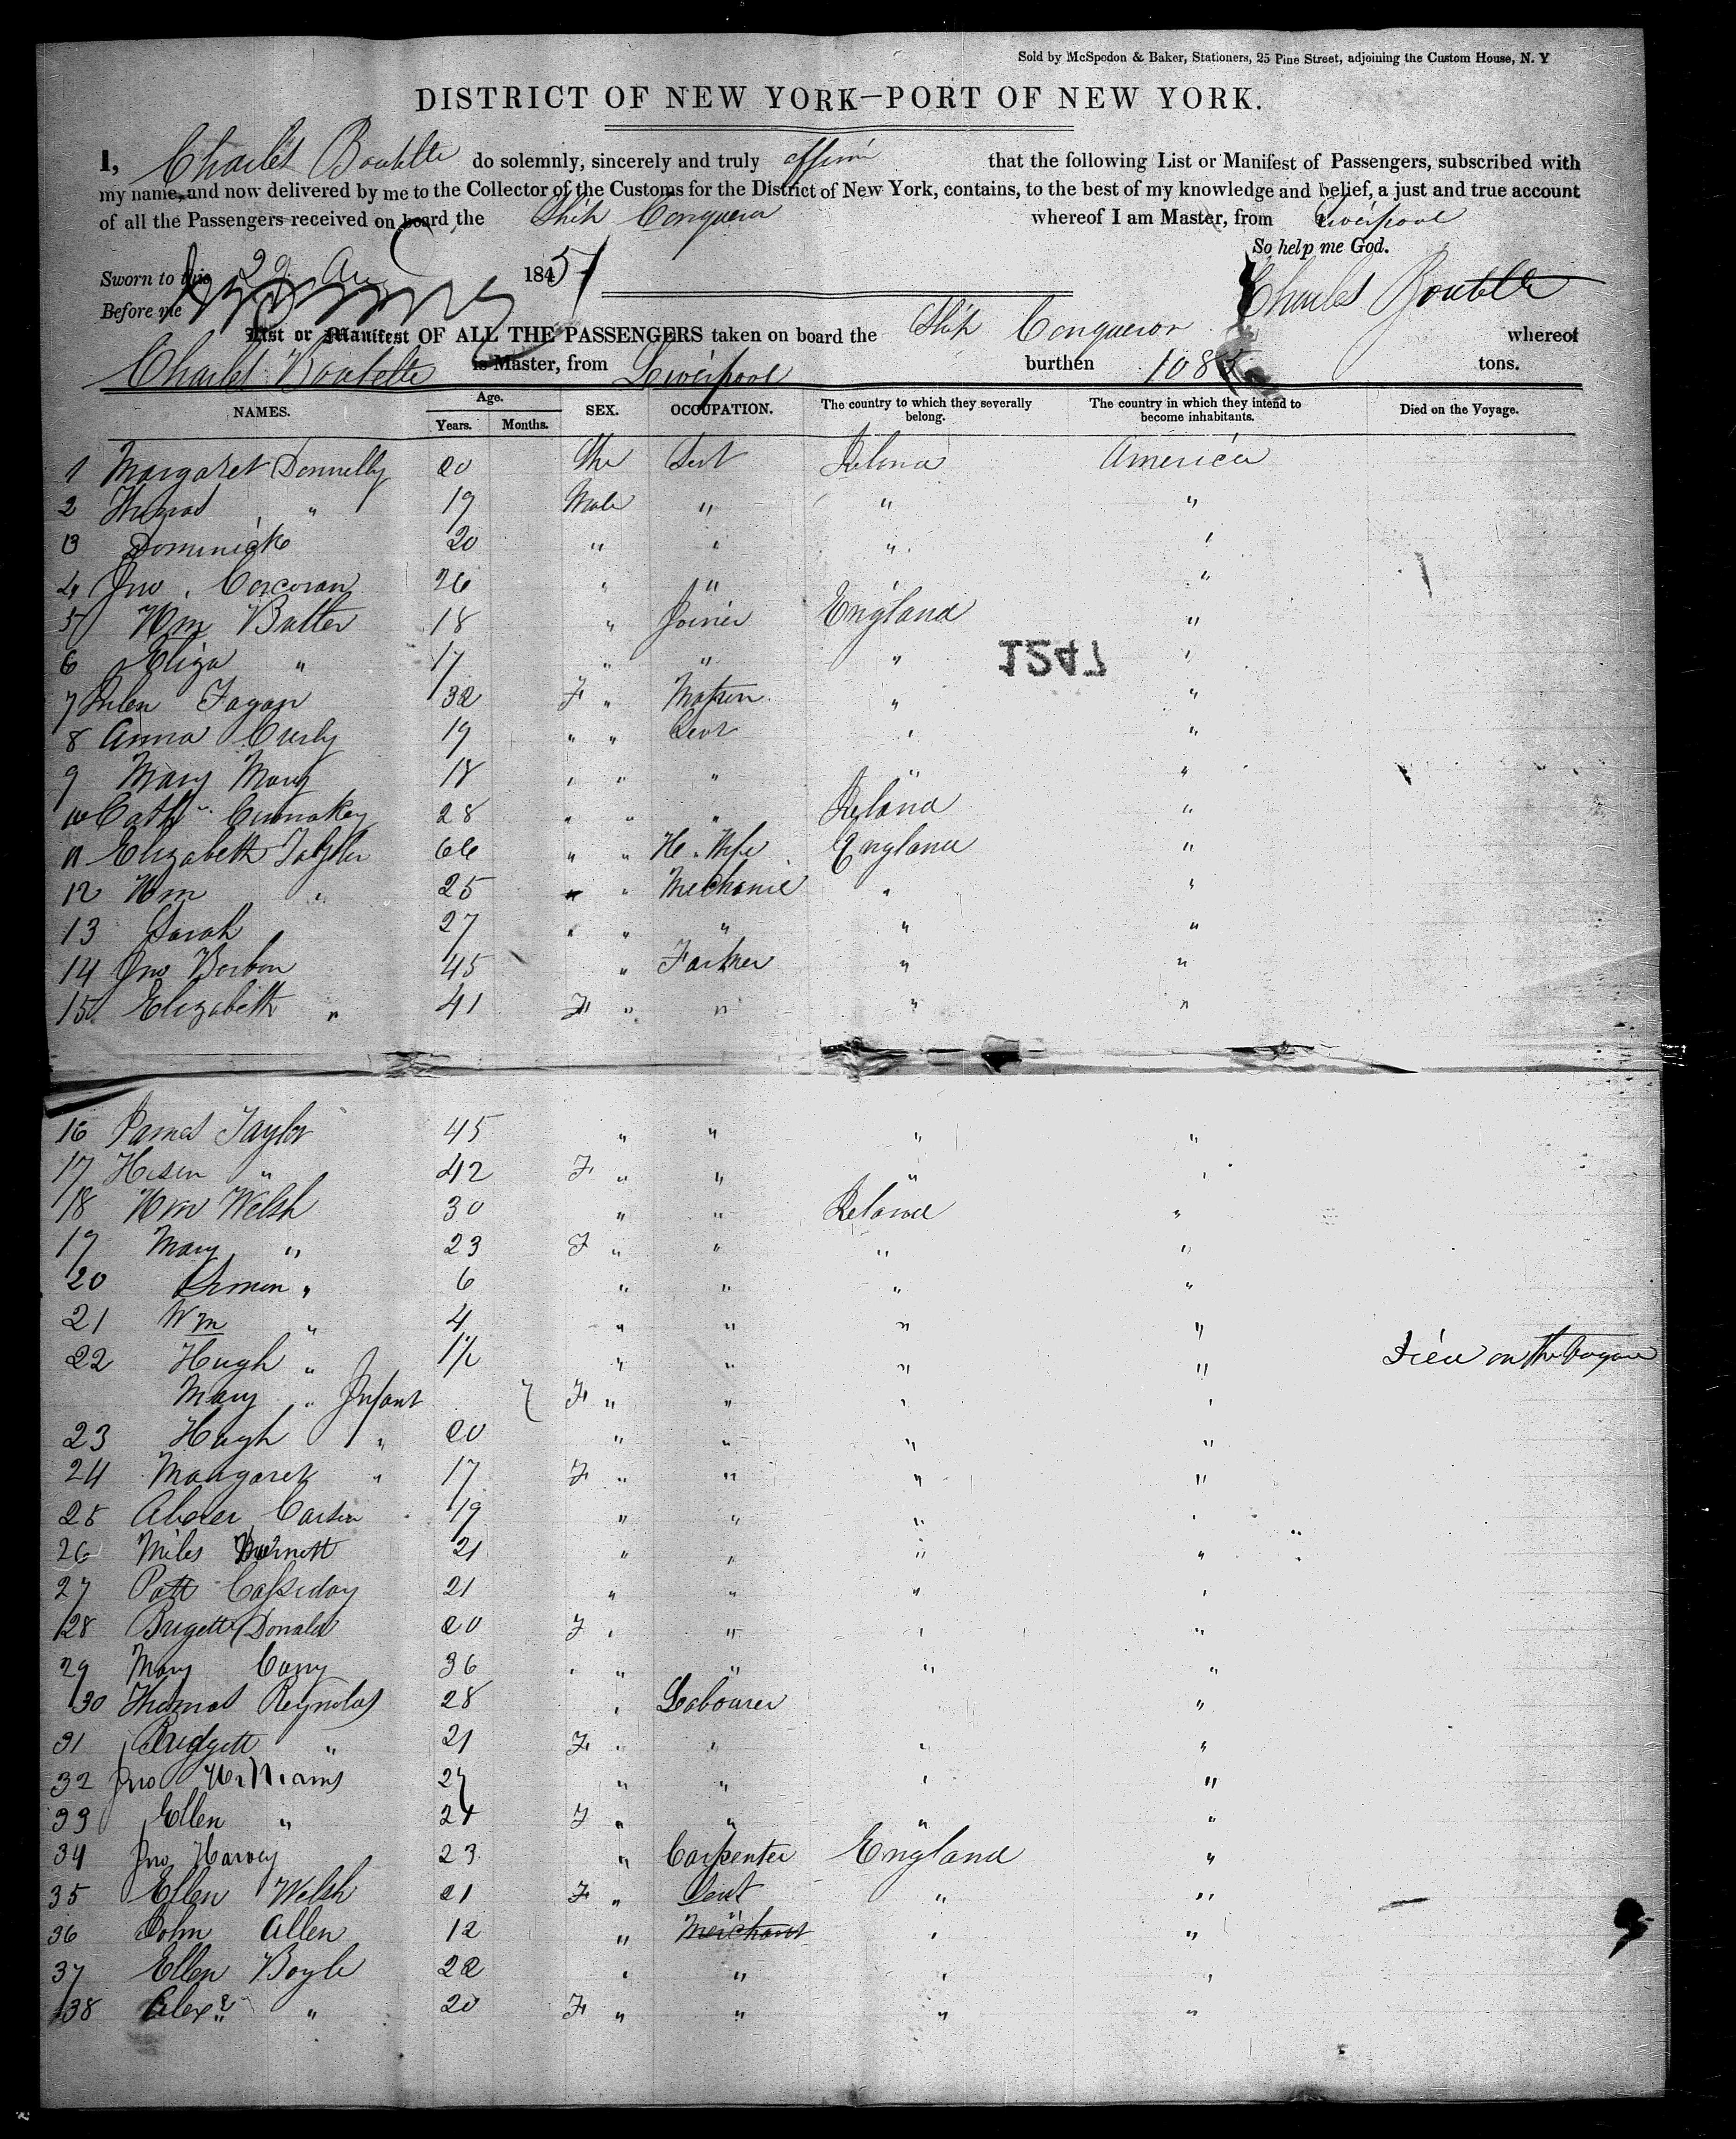 Sold by McSpedon & Baker, Stationers, 25 Pine Street, adjoining the Custom House, N. Y
DISTRICT OF NEW YORK—PORT OF NEW YORK.
I, Charles Boutelle do solemnly, sincerely and truly affirm that the following List or Manifest of Passengers, subscribed with
my name, and now delivered by me to the Collector of the Customs for the District of New York, contains, to the best of my knowledge and belief, a just and true account
of all the Passengers received on board the Ship Conqueror whereof I am Master, from Liverpool
So help me God.
Sworn to this 29 Au 1851 Charles Boutelle
Before me
List or Manifest OF ALL THE PASSENGERS taken on board the Ship Conqueror whereof
Charles Boutelle is Master, from Liverpool burthen 108 tons.
NAMES. Age. Years. Months. SEX. OCCUPATION. The country to which they severally belong. The country in which they intend to become inhabitants. Died on the Voyage.
1 Margaret Donnelly 20 Servt Ireland America
2 Thomas " 19 Male " " "
3 Dominick 20 " " " "
4 Jno. Corcoran 26 " " "
5 Wm Butler 18 " Joiner England "
6 Eliza " 17 " " " "
1247
7 Fagan 32 F " Matron " "
8 Anna 19 " " " "
9 Mary 18 " " " " "
10 Cath 28 " " " Ireland "
11 Elizabeth Taylor 66 " " H. Wife England "
12 Wm " 25 " " Mechanic " "
13 Sarah 27 " " " " "
14 Jno 45 " Farmer " "
15 Elizabeth " 41 F " " " "
16 James Taylor 45 " " " "
17 " 42 F " " " "
18 Wm Welsh 30 " " Ireland "
19 Mary " 23 F " " " "
20 " 6 " " " "
21 Wm " 4 " " " "
22 Hugh " " " " " Died on the Voyage
Mary " Infant F " " " "
23 Hugh " 20 " " " "
24 Margaret " 17 F " " " "
25 19 " " " "
26 Miles 21 " " " "
27 Patt Cassiday 21 " " " "
28 Brigett Donald 20 F " " " "
29 Mary 36 " " " " "
30 Thomas Reynolds 28 " Labourer "
31 Bridgett " 21 F " " " "
32 Jno Williams 27 " " " "
33 Ellen " 24 F " " " "
34 Jno Harvey 23 " Carpenter England "
35 Ellen Welsh 21 F " Servt " "
36 John Allen 12 " Merchant " "
37 Ellen Boyle 22 " " " "
38 Alexr " 20 F " " " "